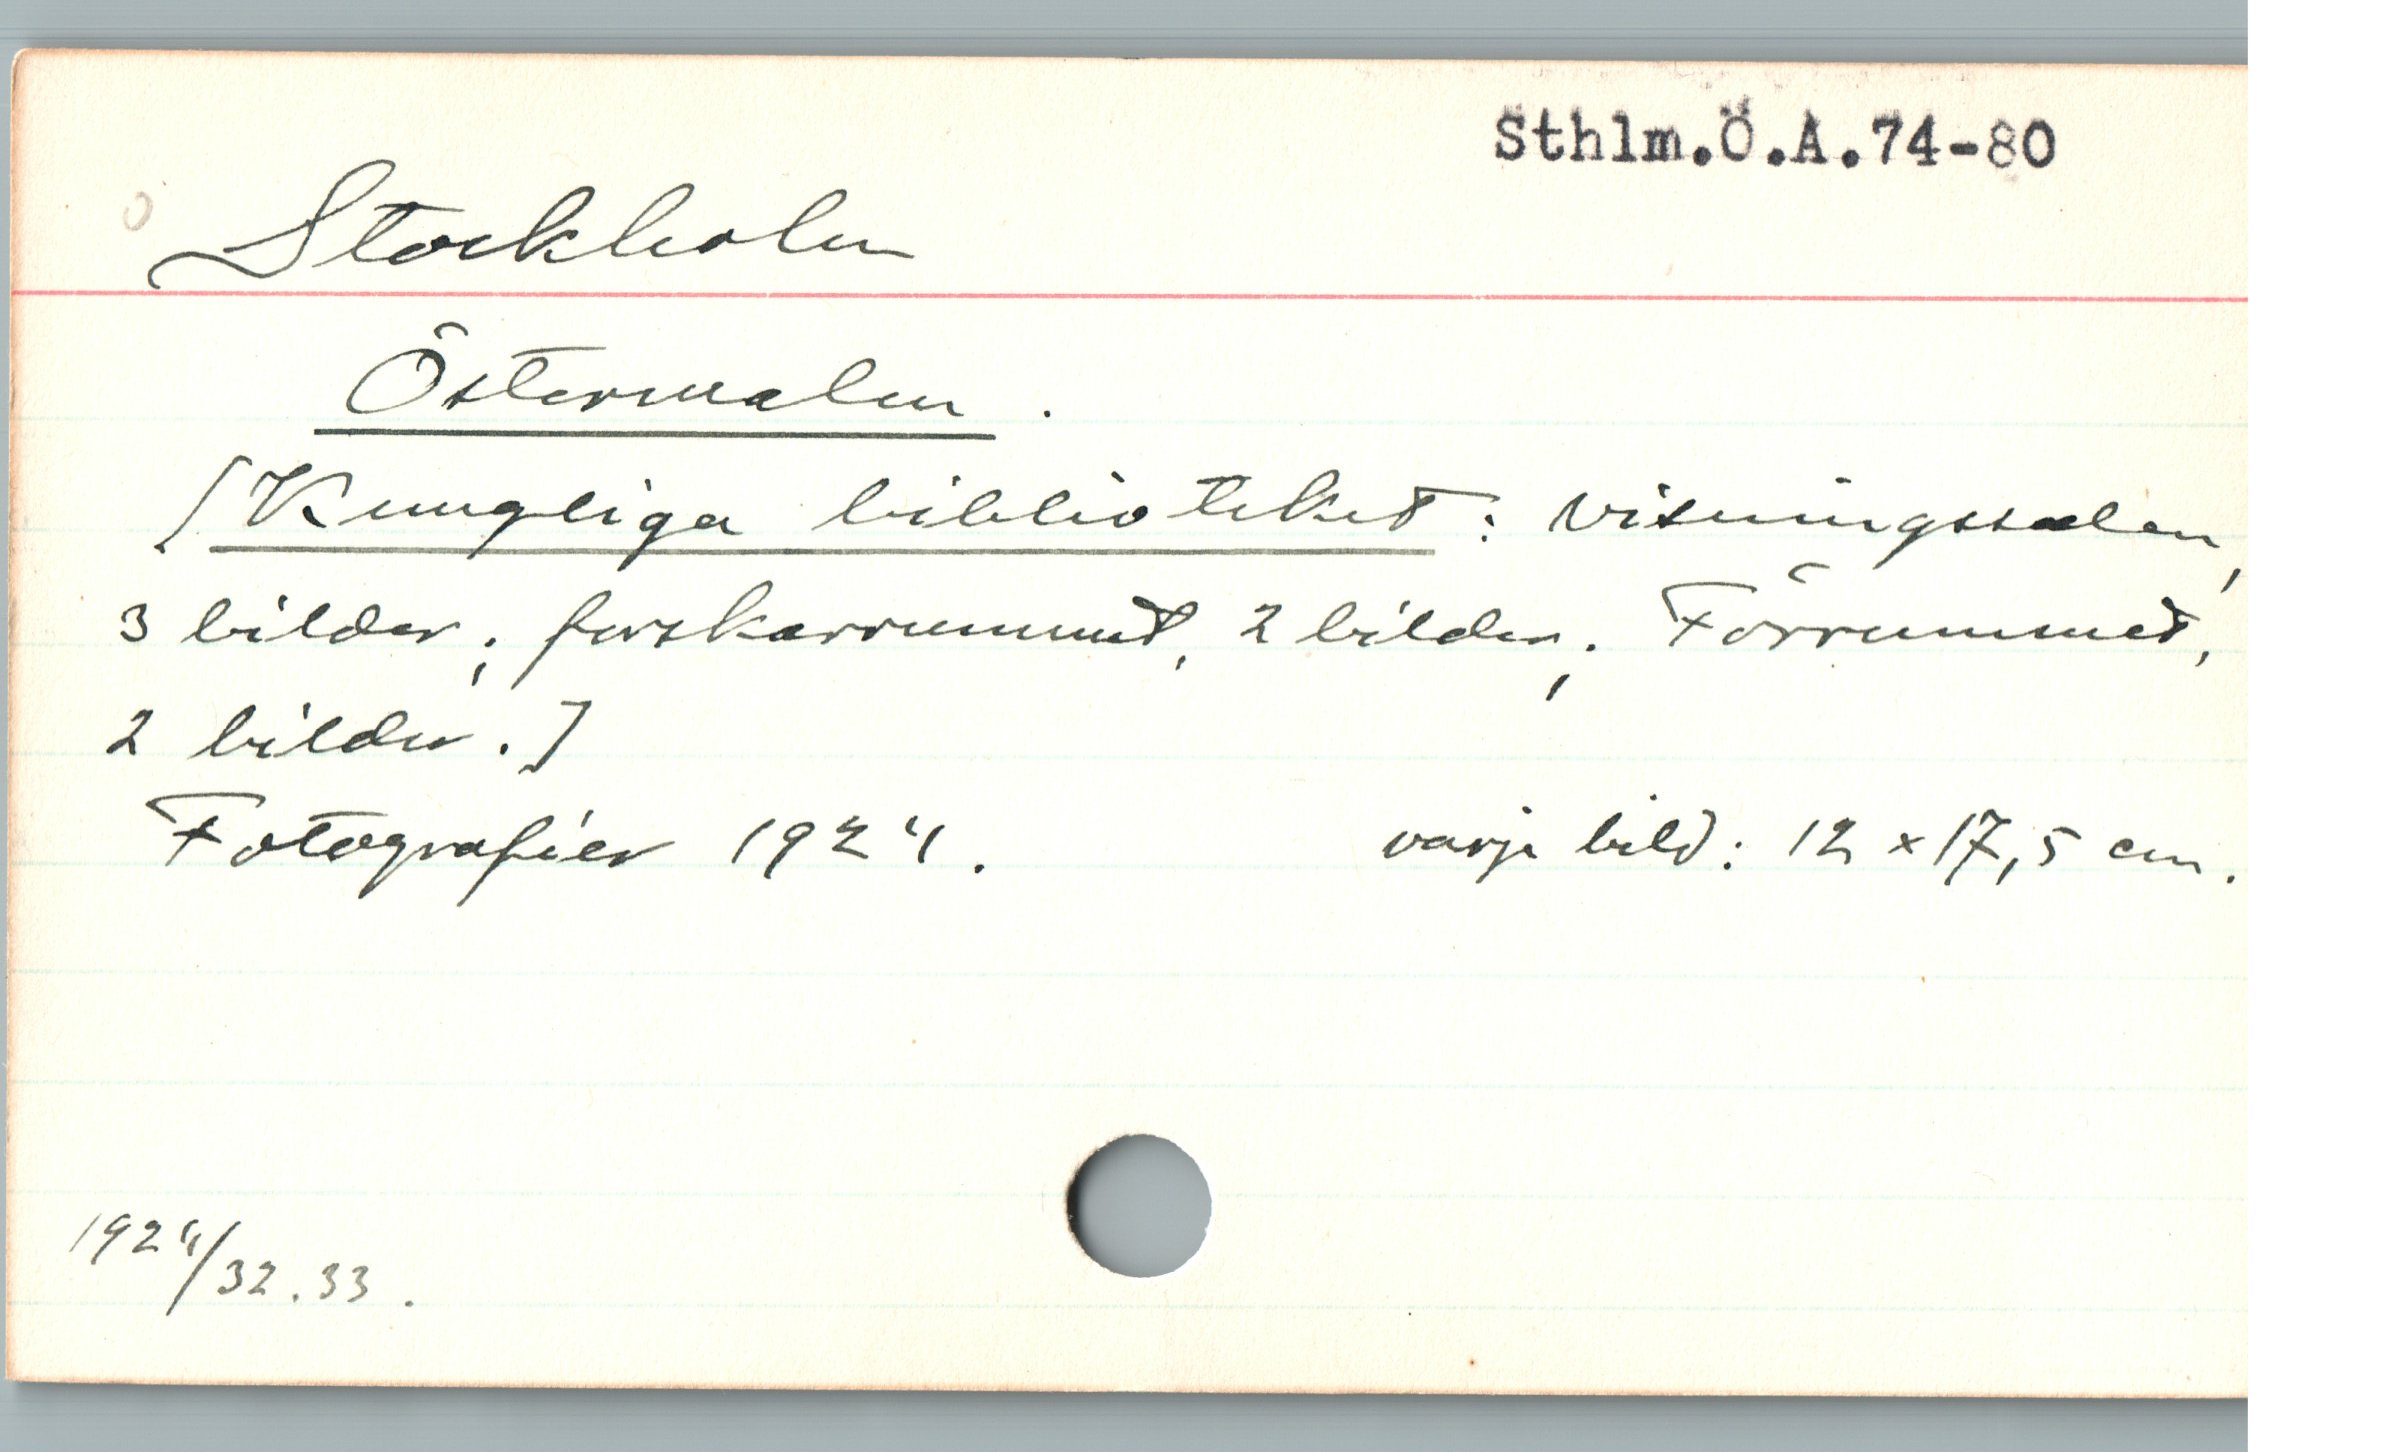 Sthlm.Ö.A.74-80
Stockholm
Östermalm.
[Kungliga biblioteket: visningssalen,
3 bilder; forskarrummet, 2 bilder; Förrummet,
2 bilder.]
Fotografier 1924. varje bild: 12 x 17,5 cm.
1924/32.33.